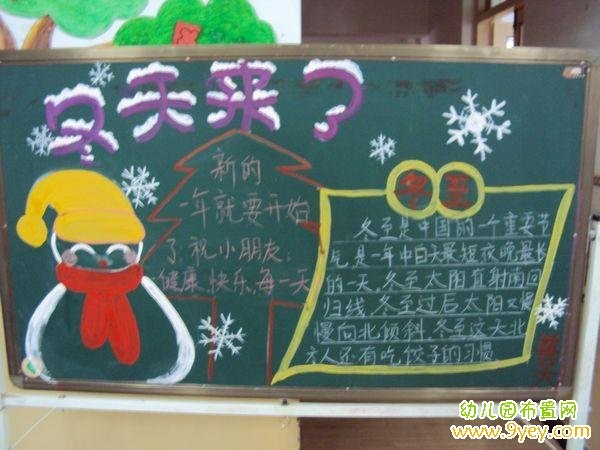 冬天来了
新的
一年就要开始
了,祝小朋友:
健康、快乐、每一天
冬至
冬至是中国的一个重要节
气,是一年中白天最短夜晚最长
的一天,冬至太阳直射南回
归线,冬至过后太阳又慢
慢向北倾斜,冬至这天北
方人还有吃饺子的习惯
幼儿园布置网
www.9yey.com